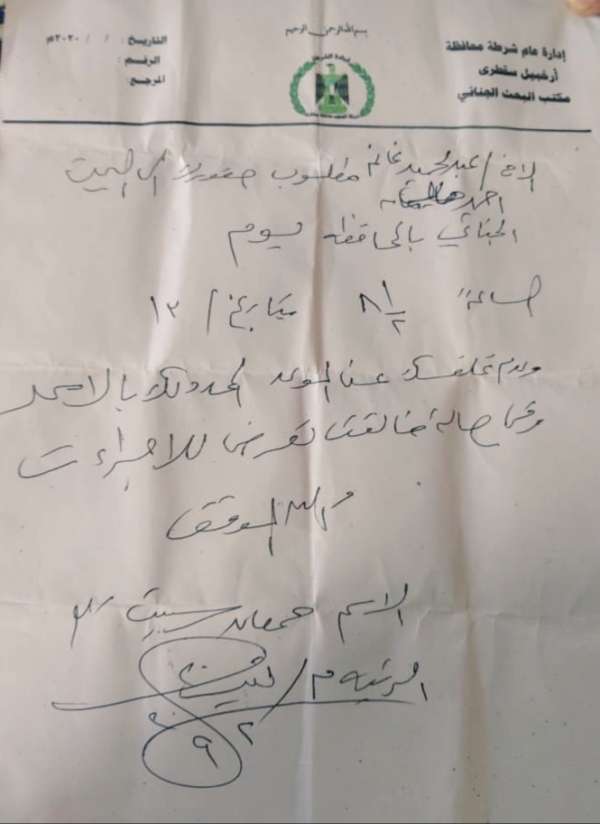 بسم الله الرحمن الرحيم
إدارة عام شرطة محافظة
أرخبيل سقطرى
مكتب البحث الجنائي
التاريخ: / / ٢٠٢٠م
الرقم:
المرجع:
الاخ / عبدالحميد غانم مطلوب حضورك الى البحث
احمد
الجنائي بالمحافظه يوم
الساعة ٨ ١/٢ بتاريخ / ١٢
وعدم تخلفك عن الموعد المحدد لك بالامر
وفي حالة مخالفتك تعرض للاجراءت
والله الموفق
الاسم
الرتبه م /
٩ ٢